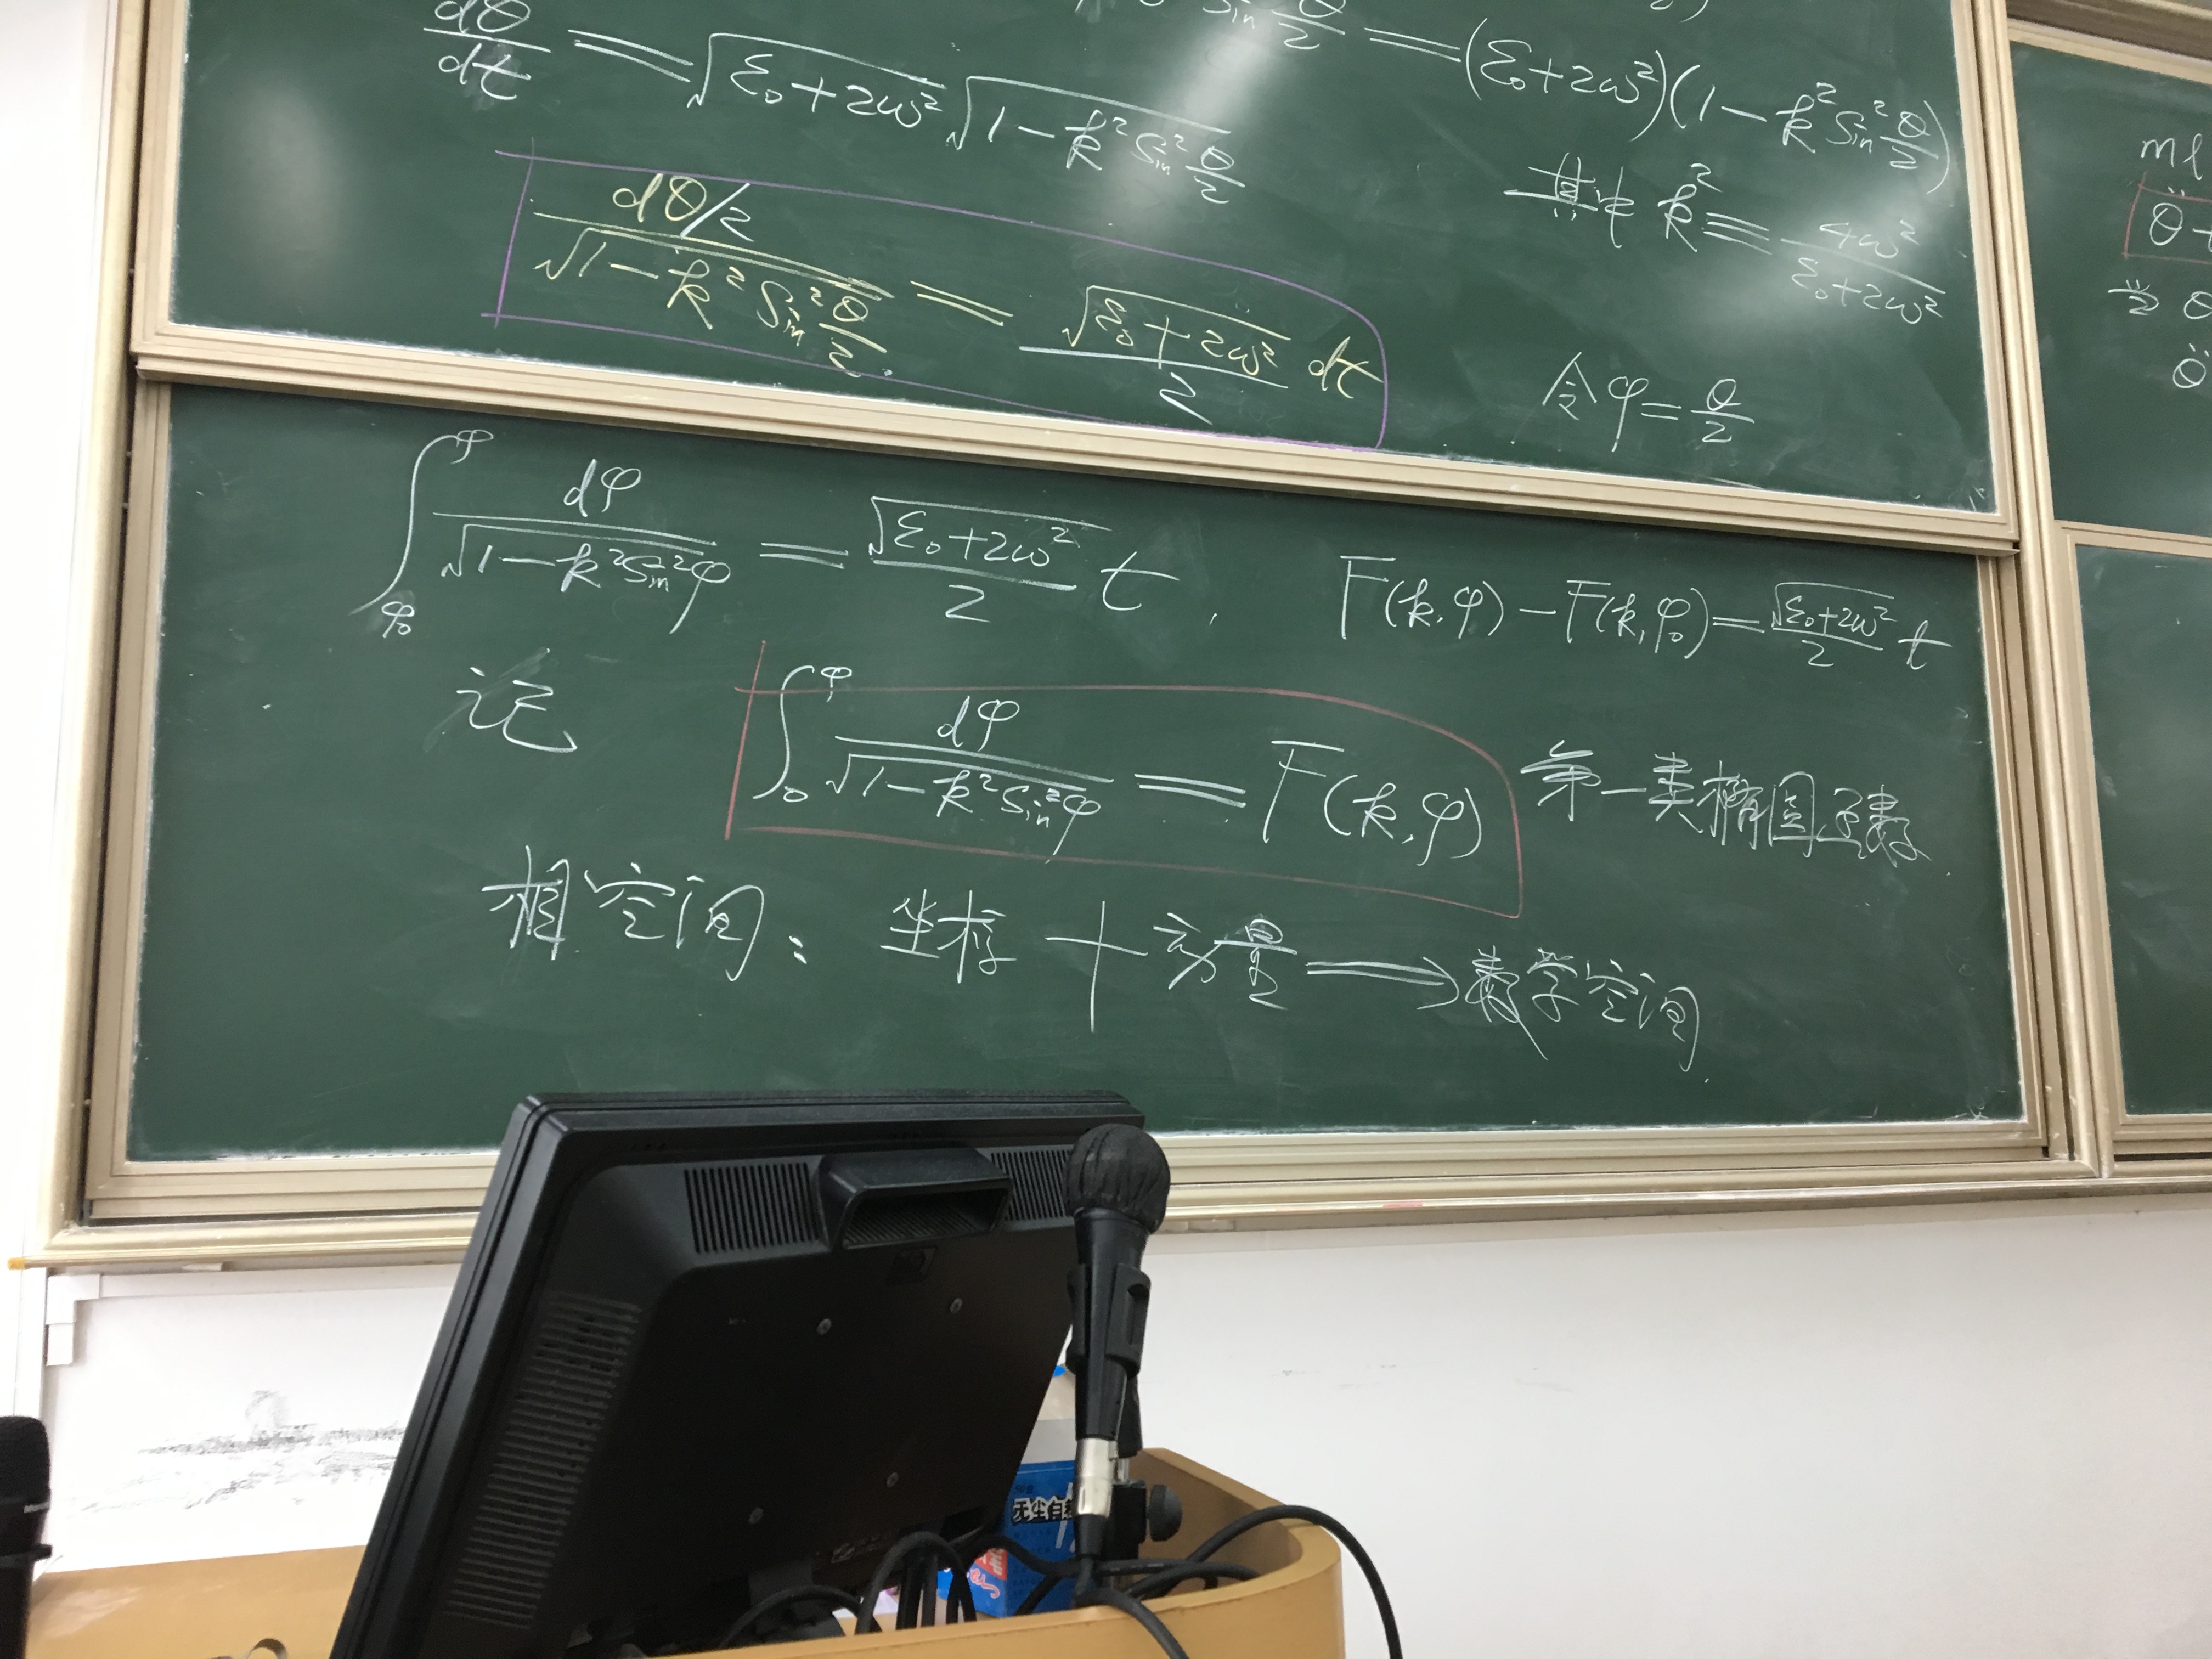 sin θ/2 = (ε₀+2ω²)(1-k² sin² θ/2)
dθ/dt = √(ε₀+2ω²) √(1-k² sin² θ/2)
其中 k² ≡ 4ω²/(ε₀+2ω²)
(dθ/2)/√(1-k² sin² θ/2) = √(ε₀+2ω²)/2 dt
令 φ = θ/2
∫_φ₀^φ dφ/√(1-k² sin² φ) = √(ε₀+2ω²)/2 t , F(k,φ) - F(k,φ₀) = √(ε₀+2ω²)/2 t
记 ∫_0^φ dφ/√(1-k² sin² φ) = F(k,φ) 第一类椭圆函数
相空间: 坐标 + 动量 ⟹ 数学空间.
ml
θ̈+
当 θ
θ̈
无尘白